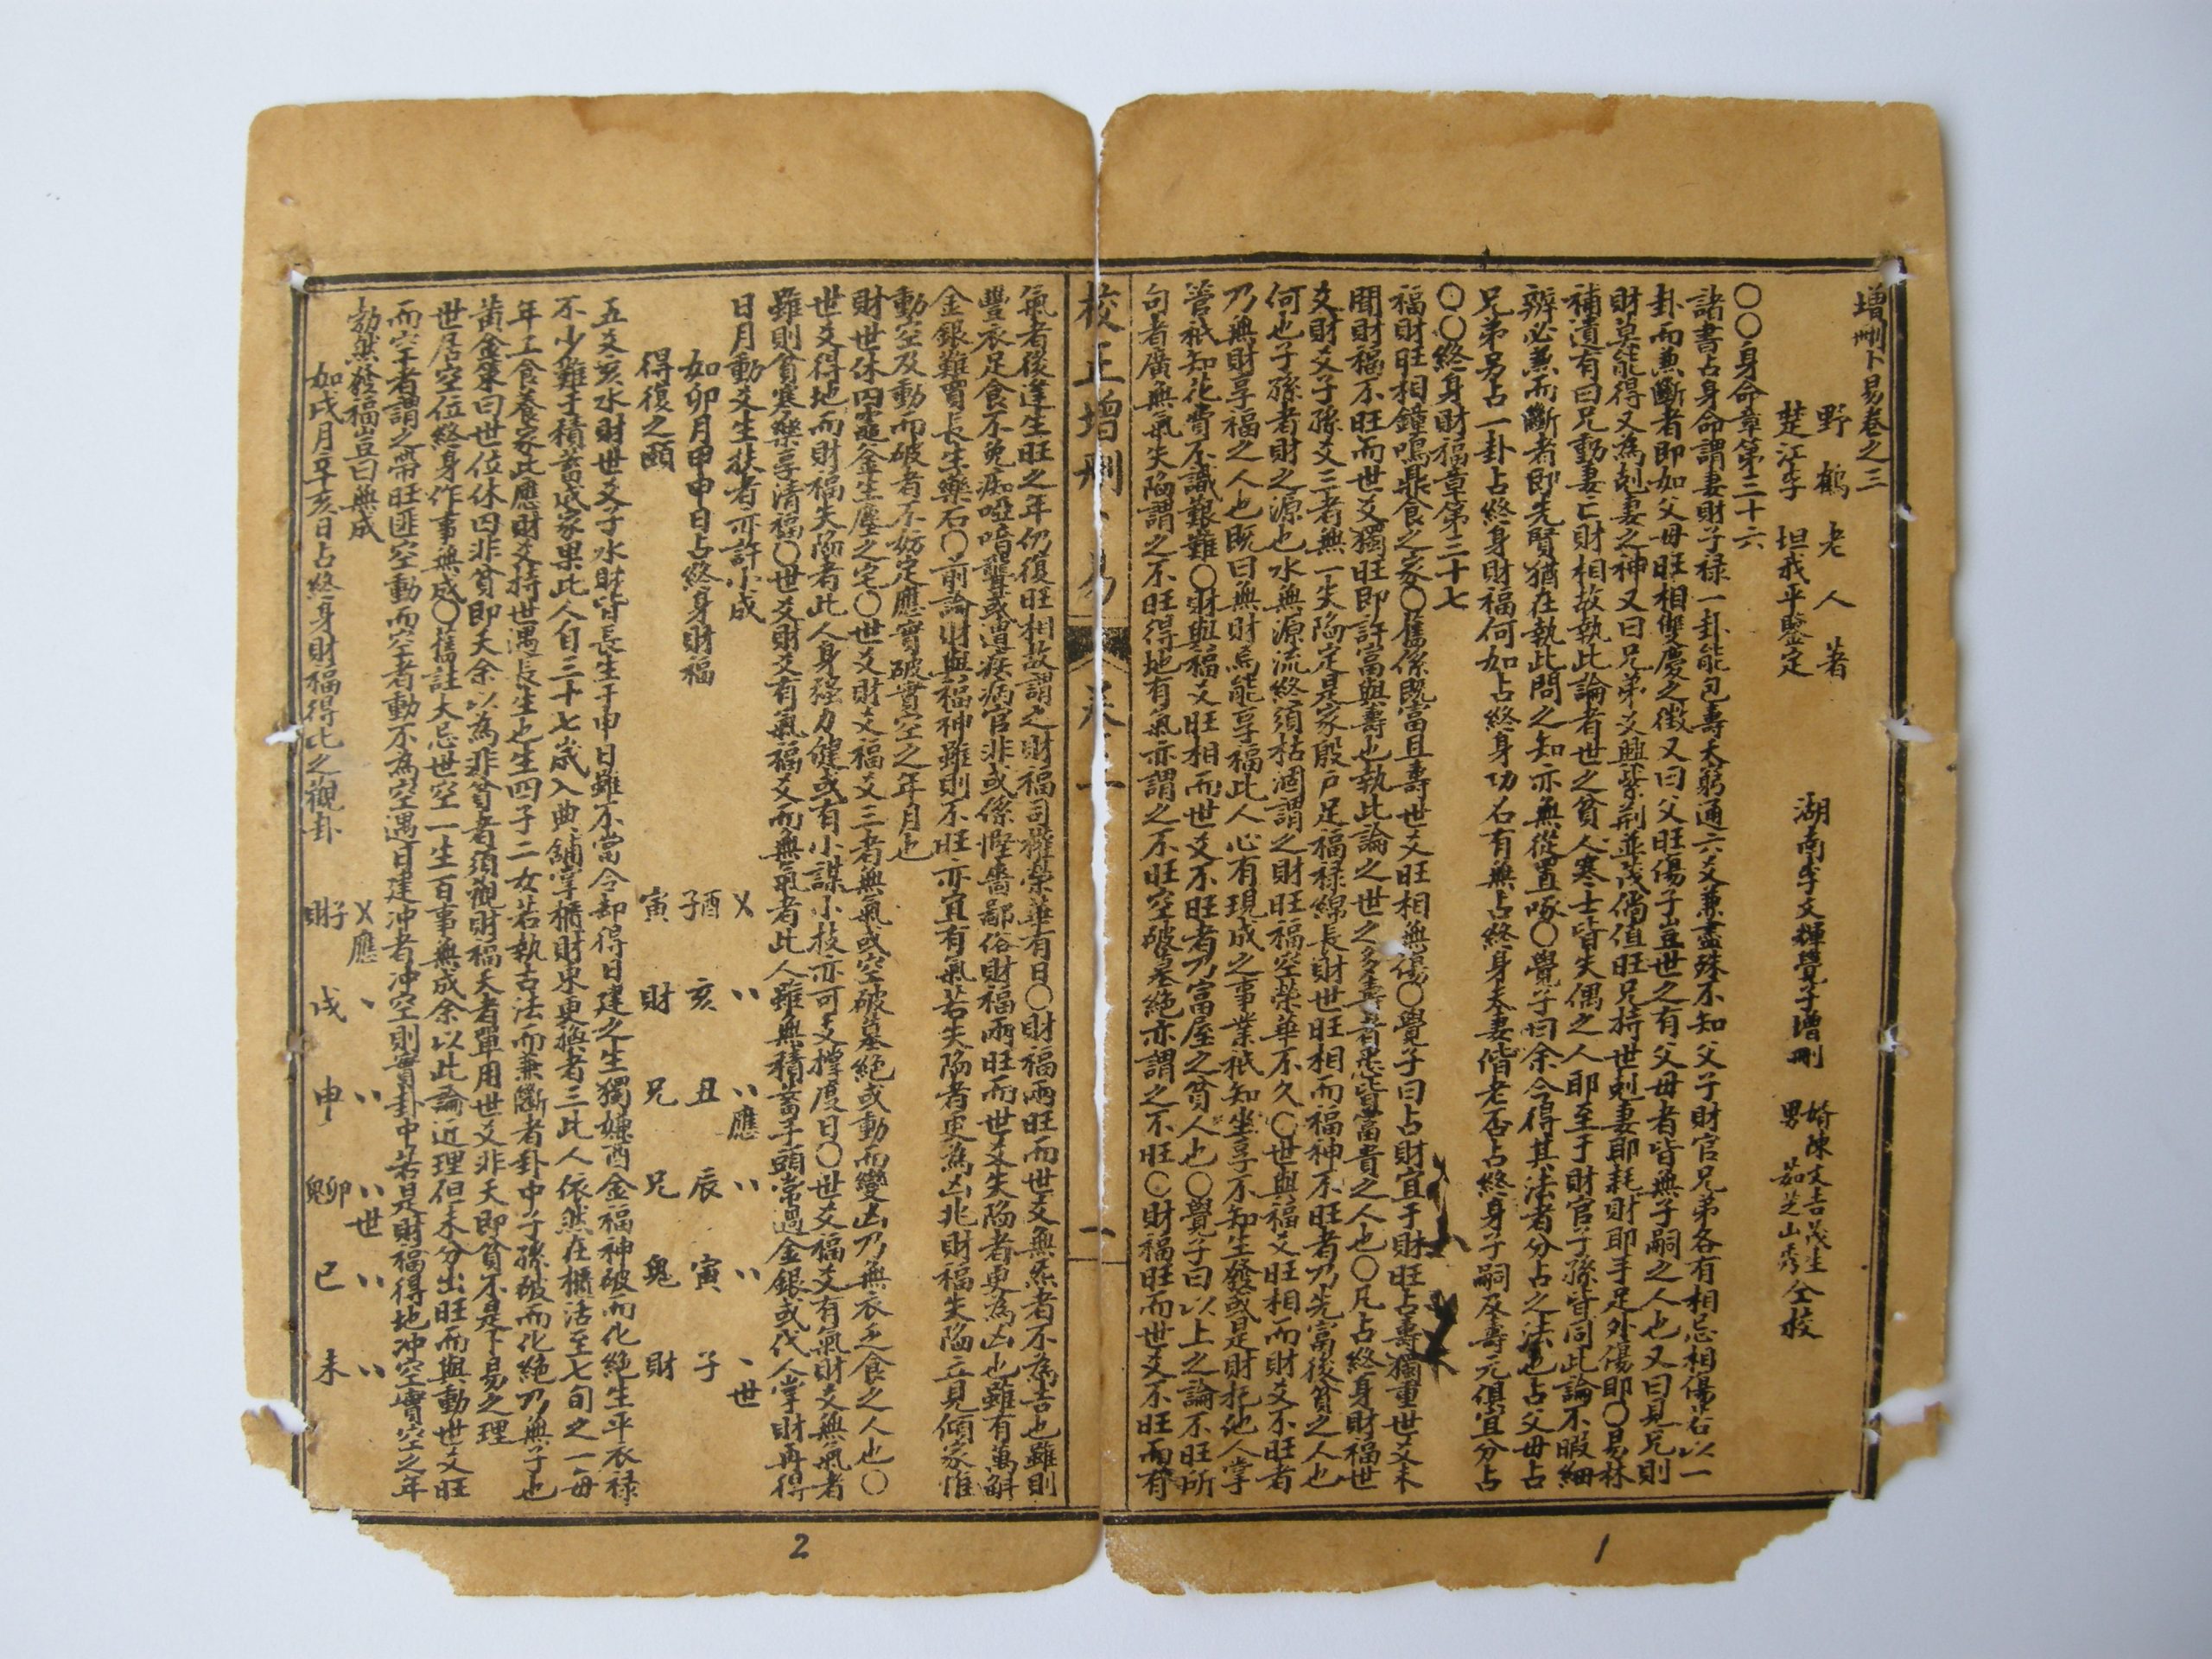 增刪卜易卷之三
野鶴老人著
楚江李坦我平鑒定
湖南李文輝覺子增刪
婿陳文吉茂生
男 茹芝山秀 仝校
○○身命章第三十六
諸書占身命謂妻財子祿一卦能包壽夭窮通六爻兼盡殊不知父子財官兄弟各有相忌相傷若以一
卦而兼斷者即如父母旺相雙慶之徵又曰父旺傷子豈世之有父母者皆無子嗣之人也又曰見兄則
財莫能得又為剋妻之神又曰兄弟爻興紫荊並茂倘值旺兄持世剋妻耶耗財耶手足外傷耶○易林
補遺有曰兄動妻亡財相故執此論者世之貧人寒士皆失偶之人耶至于財官子孫皆同此論不暇細
辨必兼而斷者即先賢猶在執此問之知亦無從置啄○覺子曰余今得其法者分占之法也占父母占
兄弟另占一卦占終身財福何如占終身功名有無占終身夫妻偕老否占終身子嗣及壽元俱宜分占
○○終身財福章第三十七
福財旺相鐘鳴鼎食之家○舊係既富且壽世爻旺相無傷○覺子曰占財宜于財旺占壽獨重世爻未
聞財福不旺而世爻獨旺即許富與壽也執此論之世之多壽者悉皆富貴之人也○凡占終身財福世
爻財爻子孫爻三者無一失陷定是家殷戶足福祿綿長財世旺相而福神不旺者乃先富後貧之人也
何也子孫者財之源也水無源流終須枯涸謂之財旺福空榮華不久○世與福爻旺相而財爻不旺者
乃無財享福之人也既曰無財烏能享福此人心有現成之事業祇知坐享不知生發或是財托他人掌
管祇知花費不識艱難○財與福爻旺相而世爻不旺者乃富屋之貧人也○覺子曰以上之論不旺所
句者廣無氣失陷謂之不旺得地有氣亦謂之不旺空破墓絕亦謂之不旺○財福旺而世爻不旺而有
校正增刪卜易 卷三 一
氣者後逢生旺之年仍復旺相故謂之財福司權榮華有日○財福兩旺而世爻無炁者不為吉也雖則
豐衣足食不免痴啞喑聾或遭疾病官非或係慳嗇鄙俗財福兩旺而世爻失陷者更為凶也雖有萬斛
金銀難買長生藥石○前論財與福神雖則不旺亦宜有氣若失陷者更為凶兆財福失陷立見傾家惟
動空及動而破者不妨定應實破實空之年月也
財世休囚竈釜生塵之宅○世爻財爻福爻三者無氣或空破墓絕或動而變凶乃無衣乏食之人也○
世爻得地而財福失陷者此人身強力健或有小謀小技亦可支撐度日○世爻福爻有氣財爻無氣者
雖則貧寒樂享清福○世爻財爻有氣福爻而無氣者此人雖無積蓄手頭常過金銀或代人掌財再得
日月動爻生扶者亦許小成
如卯月甲申日占終身財福
得復之頤
乂 〃 〃應 〃 〃 丶世
子酉 亥 丑 辰 寅 子
寅 財 兄 兄 鬼 財
五爻亥水財世爻子水財皆長生于申日雖不當令却得日建之生獨嫌酉金福神破而化絕生平衣祿
不少難于積蓄成家果此人自三十七歲入典舖掌櫃財東更換者三此人依然在櫃活至七旬之一每
年工食養家此應財爻持世遇長生也生四子二女若執古法而兼斷者卦中子孫破而化絕乃無子也
黃金策曰世位休囚非貧即夭余以為非貧者須觀財福夭者單用世爻非夭即貧不是卜易之理
世居空位終身作事無成○舊註大忌世空一生百事無成余以此論近理但未分出旺而與動世爻旺
而空者謂之帶旺匪空動而空者動不為空遇日建冲者冲空則實卦中若是財福得地冲空實空之年
勃然發福豈曰無成
如戌月辛亥日占終身財福得比之觀卦
乂應 丶 〃 〃世 〃 〃
財子 戌 申 鬼卯 巳 未